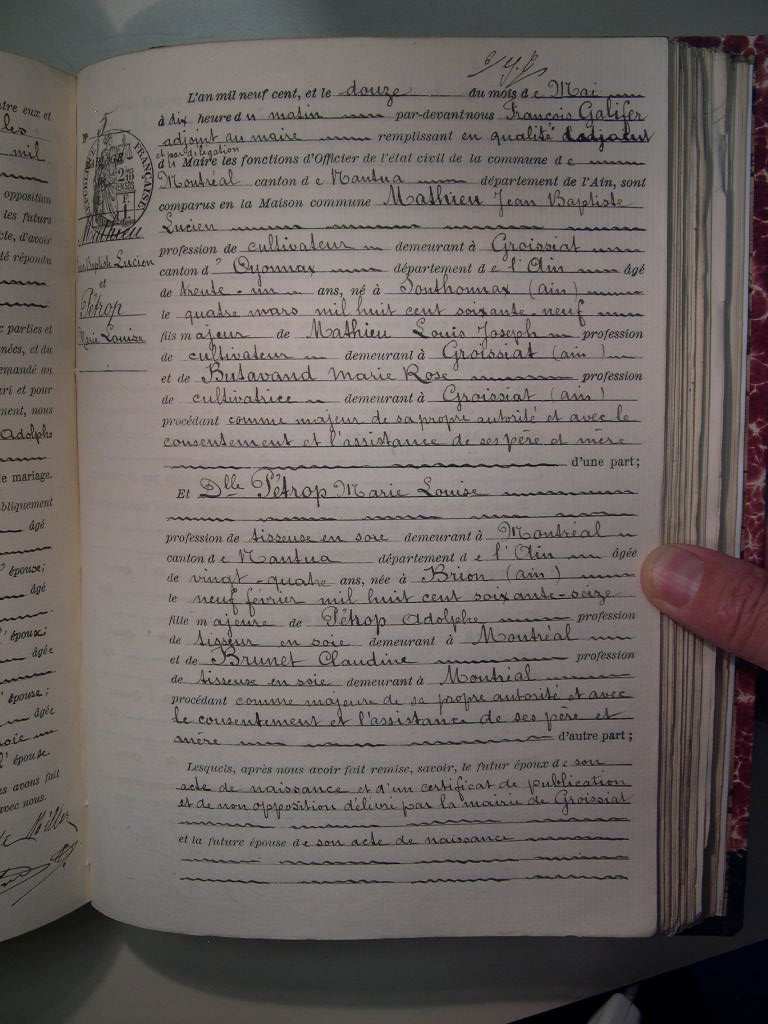 L'an mil neuf cent, et le douze du mois de Mai
à dix heure du matin par-devant nous François Galifer
adjoint au maire remplissant en qualité d'adjoint
et par délégation
du Maire les fonctions d'Officier de l'état civil de la commune de
Montréal canton de Nantua département de l'Ain, sont
comparus en la Maison commune Mathieu Jean Baptiste
Lucien
profession de cultivateur demeurant à Groissiat
canton d' Oyonnax département de l'Ain âgé
de trente-un ans, né à Songthonnax (ain)
le quatre mars mil huit cent soixante-neuf
fils majeur de Mathieu Louis Joseph profession
de cultivateur demeurant à Groissiat (ain)
et de Butavand Marie Rose profession
de cultivatrice demeurant à Groissiat (ain)
procédant comme majeur de sa propre autorité et avec le
consentement et l'assistance de ses père et mère
d'une part;
Et Dlle Pétrop Marie Louise
profession de tisseuse en soie demeurant à Montréal
canton de Nantua département de l'Ain âgée
de vingt-quatre ans, née à Brion (ain)
le neuf février mil huit cent soixante-seize
fille majeure de Pétrop Adolphe profession
de tisseur en soie demeurant à Montréal
et de Brunet Claudine profession
de tisseuse en soie demeurant à Montréal
procédant comme majeure de sa propre autorité et avec
le consentement et l'assistance de ses père et
mère d'autre part;
Lesquels, après nous avoir fait remise, savoir, le futur époux de son
acte de naissance et d'un certificat de publication
et de non opposition délivré par la mairie de Groissiat
et la future épouse de son acte de naissance
Mathieu
Jean Baptiste Lucien
et
Pétrop
Marie Louise
entre eux et
les
mil
opposition
les futurs
d'avoir
répondu
parties et
et du
demandé au
et pour
nous
Adolphe
de mariage.
publiquement
âgé
épouse;
âgé
l'épouse;
âgée
l'épouse;
âgée
soie
l'épouse
avons fait
avec nous.